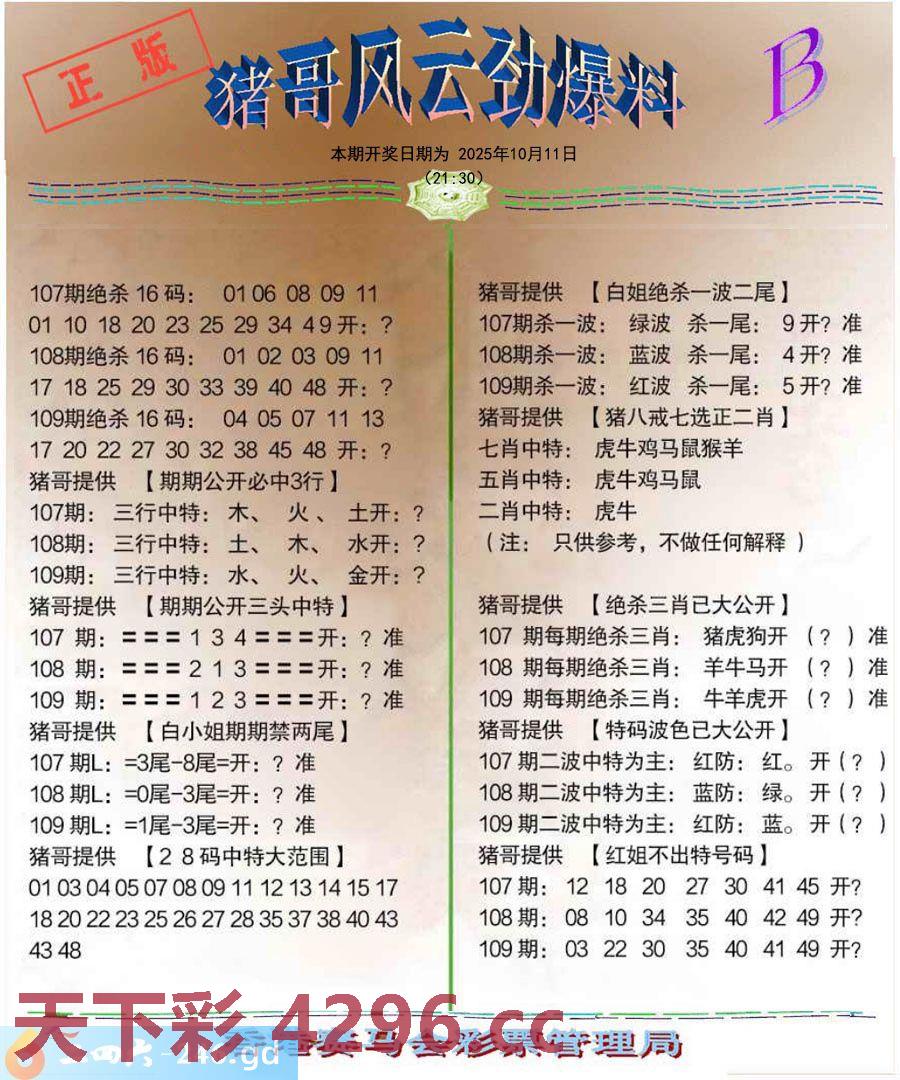 正版
猪哥风云劲爆料
B
本期开奖日期为 2025年10月11日
（21:30）
107期绝杀 16 码： 01 06 08 09 11
01 10 18 20 23 25 29 34 4 9 开：?
108期绝杀 16 码： 01 02 03 09 11
17 18 25 29 30 33 39 40 48 开：?
109期绝杀 16 码： 04 05 07 11 13
17 20 22 27 30 32 38 45 48 开：?
猪哥提供 【期期公开必中3行】
107期： 三行中特： 木、 火、 土开：?
108期： 三行中特： 土、 木、 水开：?
109期： 三行中特： 水、 火、 金开：?
猪哥提供 【期期公开三头中特】
107 期：=== 1 3 4 ===开：? 准
108 期：=== 2 1 3 ===开：? 准
109 期：=== 1 2 3 ===开：? 准
猪哥提供 【白小姐期期禁两尾】
107 期L：=3尾-8尾=开：? 准
108 期L：=0尾-3尾=开：? 准
109 期L：=1尾-3尾=开：? 准
猪哥提供 【2 8 码中特大范围】
01 03 04 05 07 08 09 11 12 13 14 15 17
18 20 22 23 25 26 27 28 35 37 38 40 43
43 48
猪哥提供 【白姐绝杀一波二尾】
107期杀一波： 绿波 杀一尾： 9 开? 准
108期杀一波： 蓝波 杀一尾： 4 开? 准
109期杀一波： 红波 杀一尾： 5 开? 准
猪哥提供 【猪八戒七选正二肖】
七肖中特： 虎牛鸡马鼠猴羊
五肖中特： 虎牛鸡马鼠
二肖中特： 虎牛
（注： 只供参考，不做任何解释 ）
猪哥提供 【绝杀三肖已大公开】
107 期每期绝杀三肖： 猪虎狗开 （? ）准
108 期每期绝杀三肖： 羊牛马开 （? ）准
109 期每期绝杀三肖： 牛羊虎开 （? ）准
猪哥提供 【特码波色已大公开】
107 期二波中特为主： 红防： 红。 开（? ）
108 期二波中特为主： 蓝防： 绿。 开（? ）
109 期二波中特为主： 红防： 蓝。 开（? ）
猪哥提供 【红姐不出特号码】
107 期： 12 18 20 27 30 41 45 开?
108 期： 08 10 34 35 40 42 49 开?
109 期： 03 22 30 35 40 41 49 开?
天下彩 4296.cc
马会彩票管理局